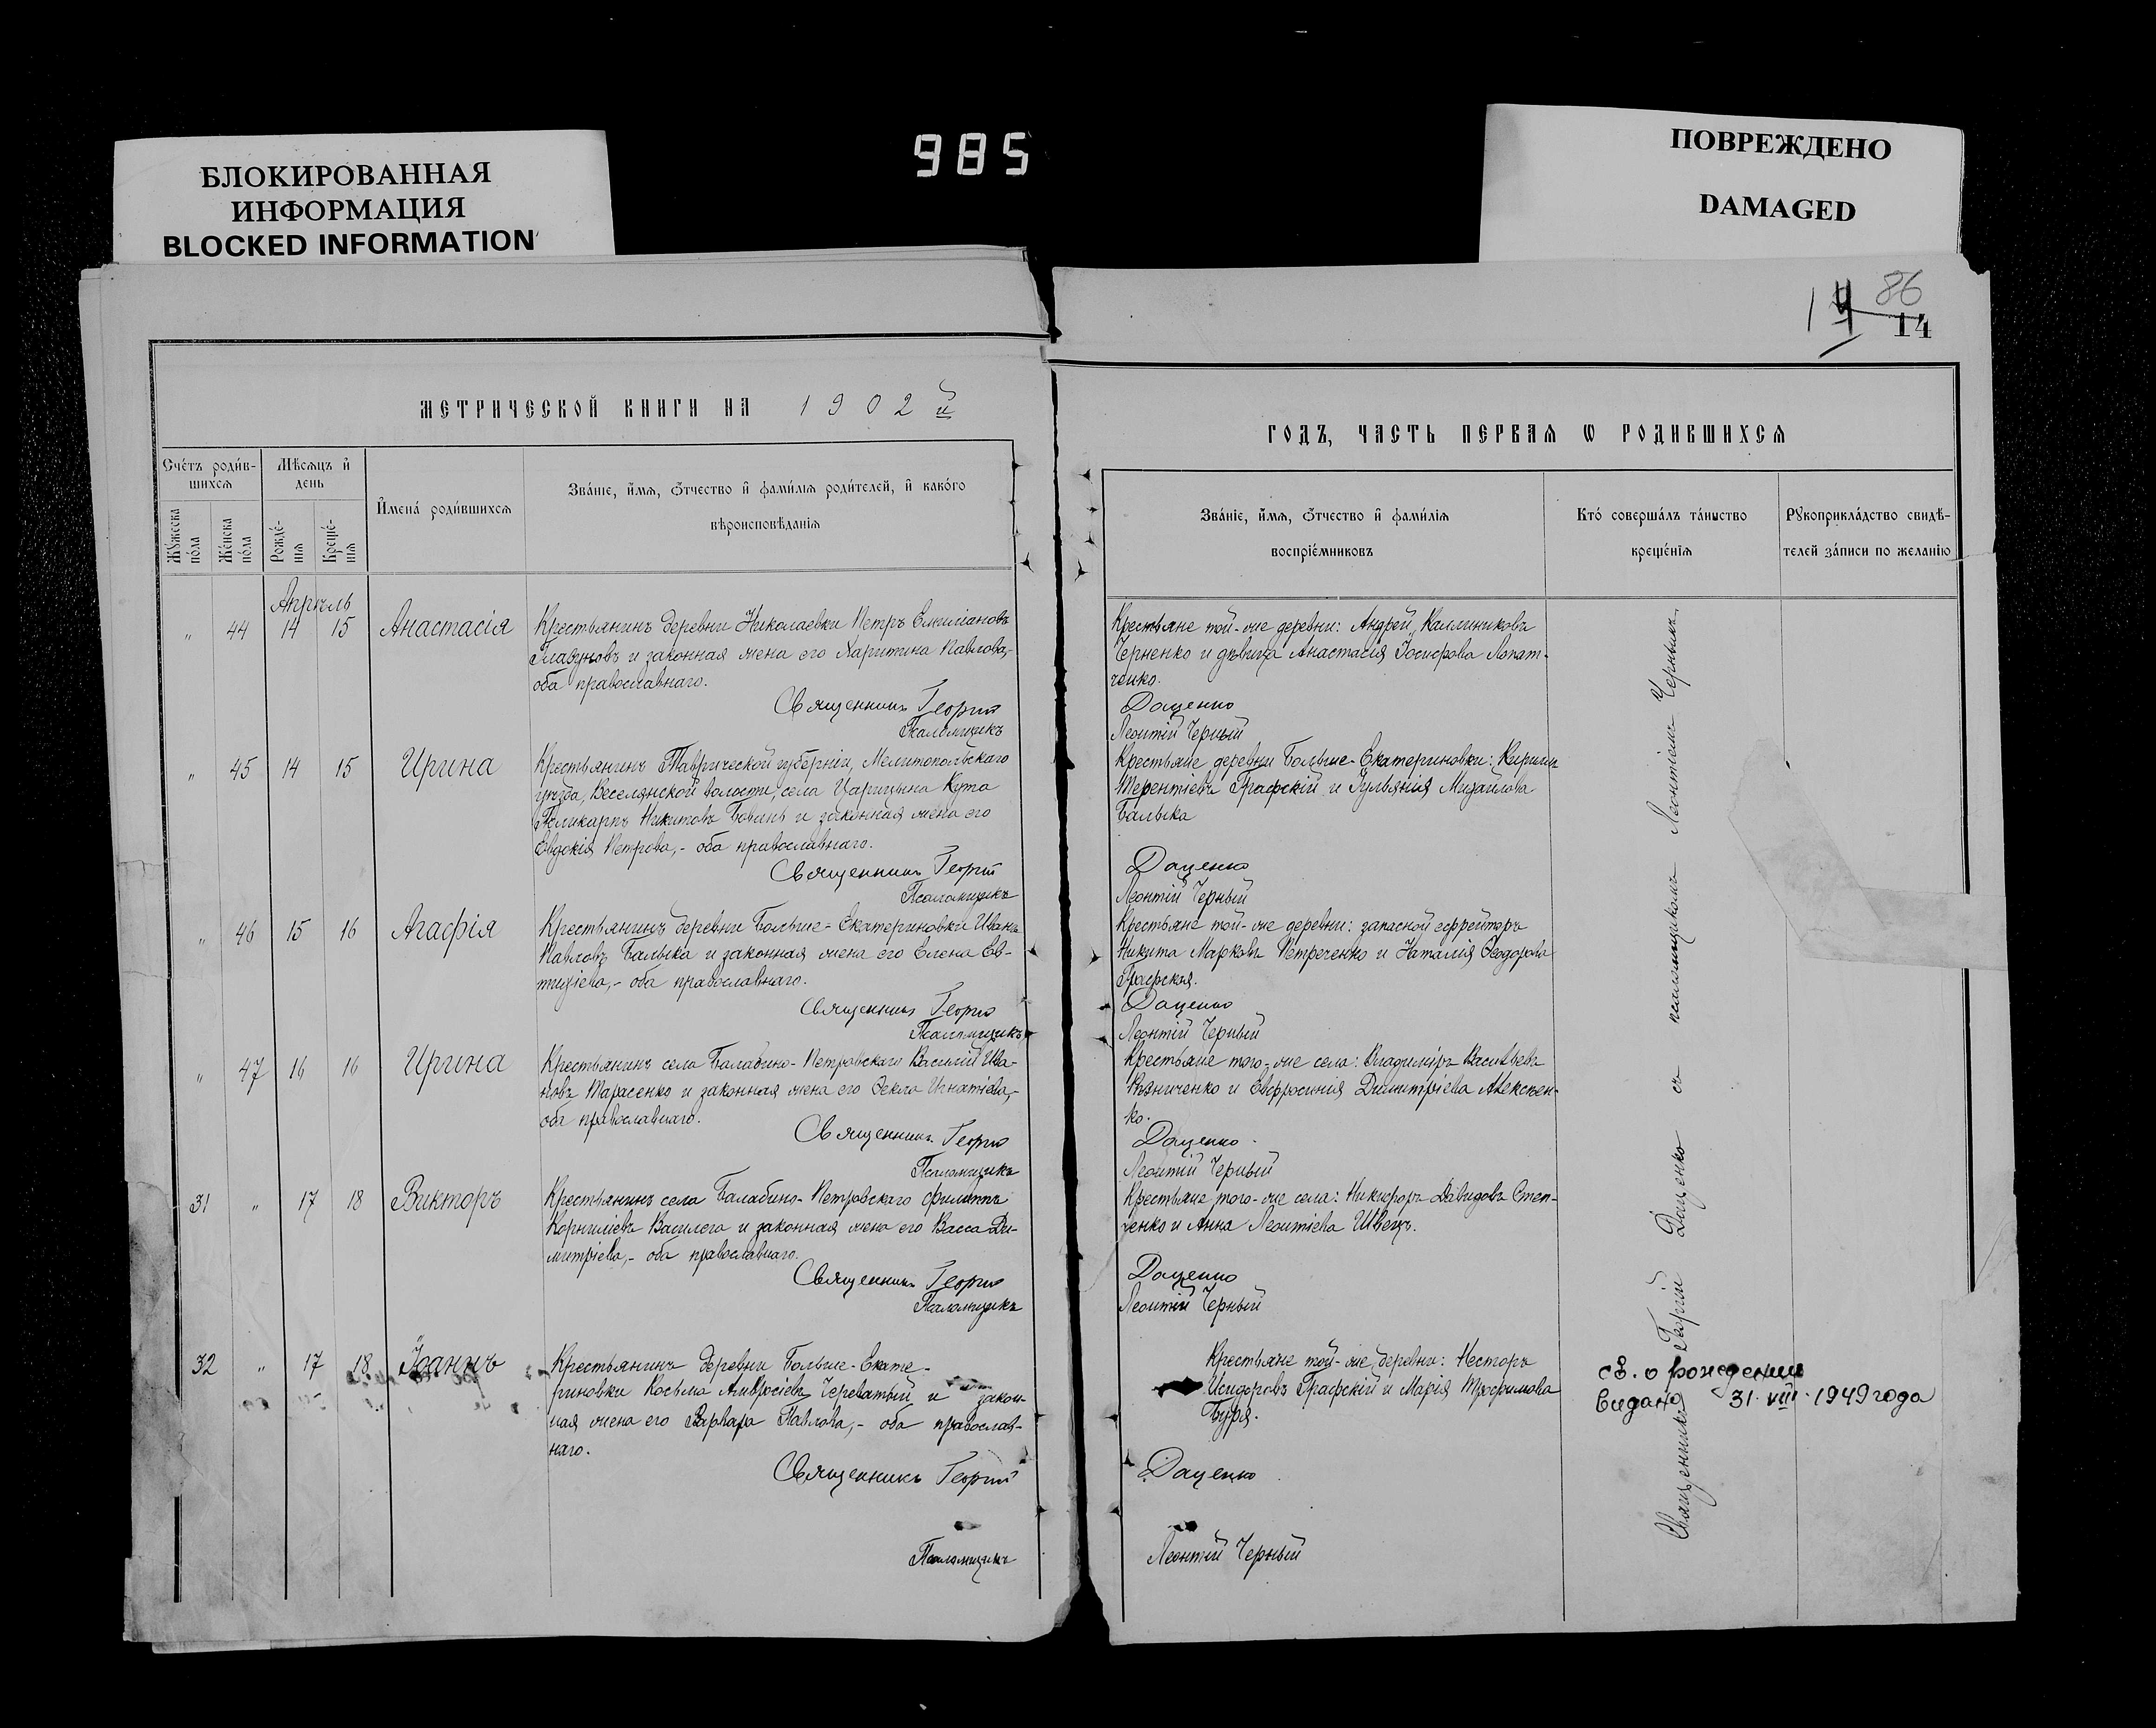 БЛОКИРОВАННАЯ
ИНФОРМАЦИЯ
BLOCKED INFORMATION
985
ПОВРЕЖДЕНО
DAMAGED
86
14
14
МЕТРИЧЕСКОЙ КНИГИ НА 1902й
Счетъ родив-
шихся
Мѣсяцъ и
день
Мужеска
пола
Женска
пола
Рожде-
нія
Креще-
нія
Имена родившихся
Званіе, имя, отчество и фамилія родителей, и какого
вѣроисповѣданія
Апрѣль
„ 44 14 15 Анастасія
Крестьянинъ деревни Николаевки Петръ Емиліановъ
Глазуновъ и законная жена его Харитина Павлова,-
оба православнаго.
Священникъ Георгій
Псаломщикъ
„ 45 14 15 Ирина
Крестьянинъ Таврической губерніи, Мелитопольскаго
уѣзда, Веселянской волости, села Царицына Кута
Поликарпъ Никитовъ и законная жена его
Евдокія Петрова,- оба православнаго.
Священникъ Георгій
Псаломщикъ
„ 46 15 16 Агафія
Крестьянинъ деревни Больше-Екатериновки Иванъ
Павловъ Балыка и законная жена его Елена Ев-
тихіева,- оба православнаго.
Священникъ Георгій
Псаломщикъ
„ 47 16 16 Ирина
Крестьянинъ села Балабино-Петровскаго Василій Ива-
новъ Тарасенко и законная жена его Ѳекла Игнатіева,-
оба православнаго.
Священникъ Георгій
Псаломщикъ
31 „ 17 18 Викторъ
Крестьянинъ села Балабино-Петровскаго Филиппъ
Корниліевъ и законная жена его Васса Ди-
митріева,- оба православнаго.
Священникъ Георгій
Псаломщикъ
32 „ 17 18 Іоаннъ
Крестьянинъ деревни Больше-Екате-
риновки Косьма Амвросіевъ Череватый и закон-
ная жена его Варвара Павлова,- оба православ-
наго.
Священникъ Георгій
Псаломщикъ
ГОДЪ, ЧАСТЬ ПЕРВАЯ Ѡ РОДИВШИХСЯ
Званіе, имя, отчество и фамилія
воспріемниковъ
Кто совершалъ таинство
крещенія
Рукоприкладство свидѣ-
телей записи по желанію
Крестьяне той-же деревни: Андрей Каллиниковъ
Черненко и дѣвица Анастасія Іосифова Лопат-
ченко.
Даценко
Леонтій Черный
Крестьяне деревни Больше-Екатериновки: Кириллъ
Терентіевъ Графскій и Іульянія Михаилова
Балыка
Даценко
Леонтій Черный
Крестьяне той-же деревни: запасной ефрейторъ
Никита Марковъ Петреченко и Наталія Ѳеодорова
Графская.
Даценко
Леонтій Черный
Крестьяне того-же села: Владиміръ Васильевъ
и Евфросинія Димитріева Алексѣен-
ко.
Даценко
Леонтій Черный
Крестьяне того-же села: Никифоръ Давидовъ Степ-
ченко и Анна Леонтіева Швецъ.
Даценко
Леонтій Черный
Крестьяне той-же деревни: Несторъ
Исидоровъ Графскій и Марія Трофимова
Буря.
Даценко
Леонтій Черный
Священникъ Георгій Даценко съ псаломщикомъ Леонтіемъ Чернымъ.
св. о рождении
видано 31. VIII. 1949 года